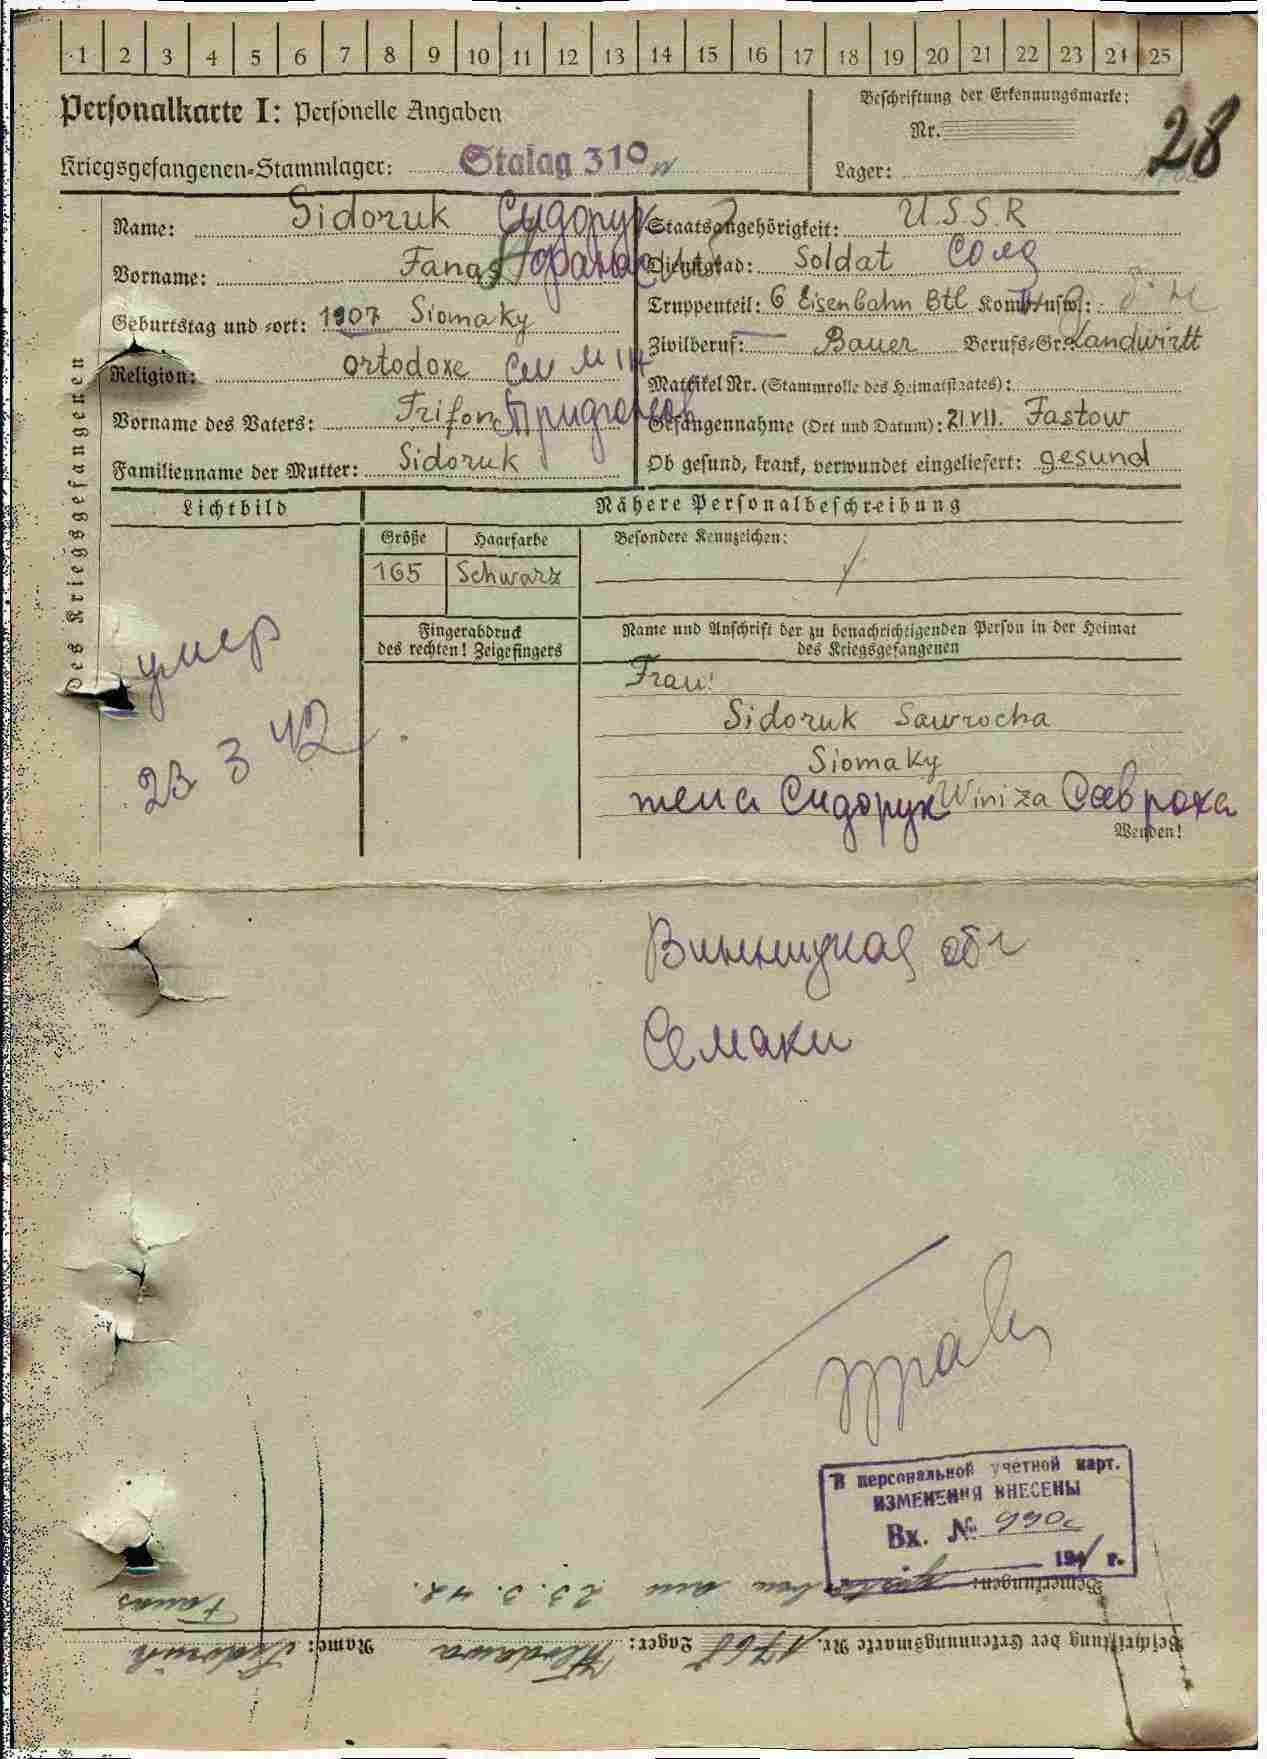 1 2 3 4 5 6 7 8 9 10 11 12 13 14 15 16 17 18 19 20 21 22 23 24 25
Personalkarte I: Personelle Angaben
Beschriftung der Erkennungsmarke:
Nr.
28
Kriegsgefangenen-Stammlager: Stalag 310
Lager:
des Kriegsgefangenen
Name: Sidoruk Сидорук
Staatsangehörigkeit: U.S.S.R
Vorname: Fanas Афанас
Dienstgrad: Soldat Солд
Geburtstag und -ort: 1907 Siomaky
Truppenteil: 6 Eisenbahn Btl Kom. usw.:
Religion: Ortodoxe
Zivilberuf: Bauer Berufs-Gr.: Landwirtt
Matrikel Nr. (Stammrolle des Heimatstaates):
Vorname des Vaters: Trifon
Gefangennahme (Ort und Datum): 21.VII. Fastow
Familienname der Mutter: Sidoruk
Ob gesund, krank, verwundet eingeliefert: gesund
Lichtbild
Nähere Personalbeschreibung
Größe Haarfarbe Besondere Kennzeichen:
165 Schwarz
Fingerabdruck
des rechten! Zeigefingers
Name und Anschrift der zu benachrichtigenden Person in der Heimat
des Kriegsgefangenen
умер
23 3 42
Frau!
Sidoruk Sawrocha
Siomaky
жена Сидорук Winiza Савроха
Wenden!
Винницкая обл
Семаки
В персональной учетной карт.
ИЗМЕНЕНИЯ ВНЕСЕНЫ
Вх. №
194 г.
Bemerkungen: gestorben am 23.3.42.
Fanas
Beschriftung der Erkennungsmarke Nr. Lager: Wlodawa Name: Sidoruk